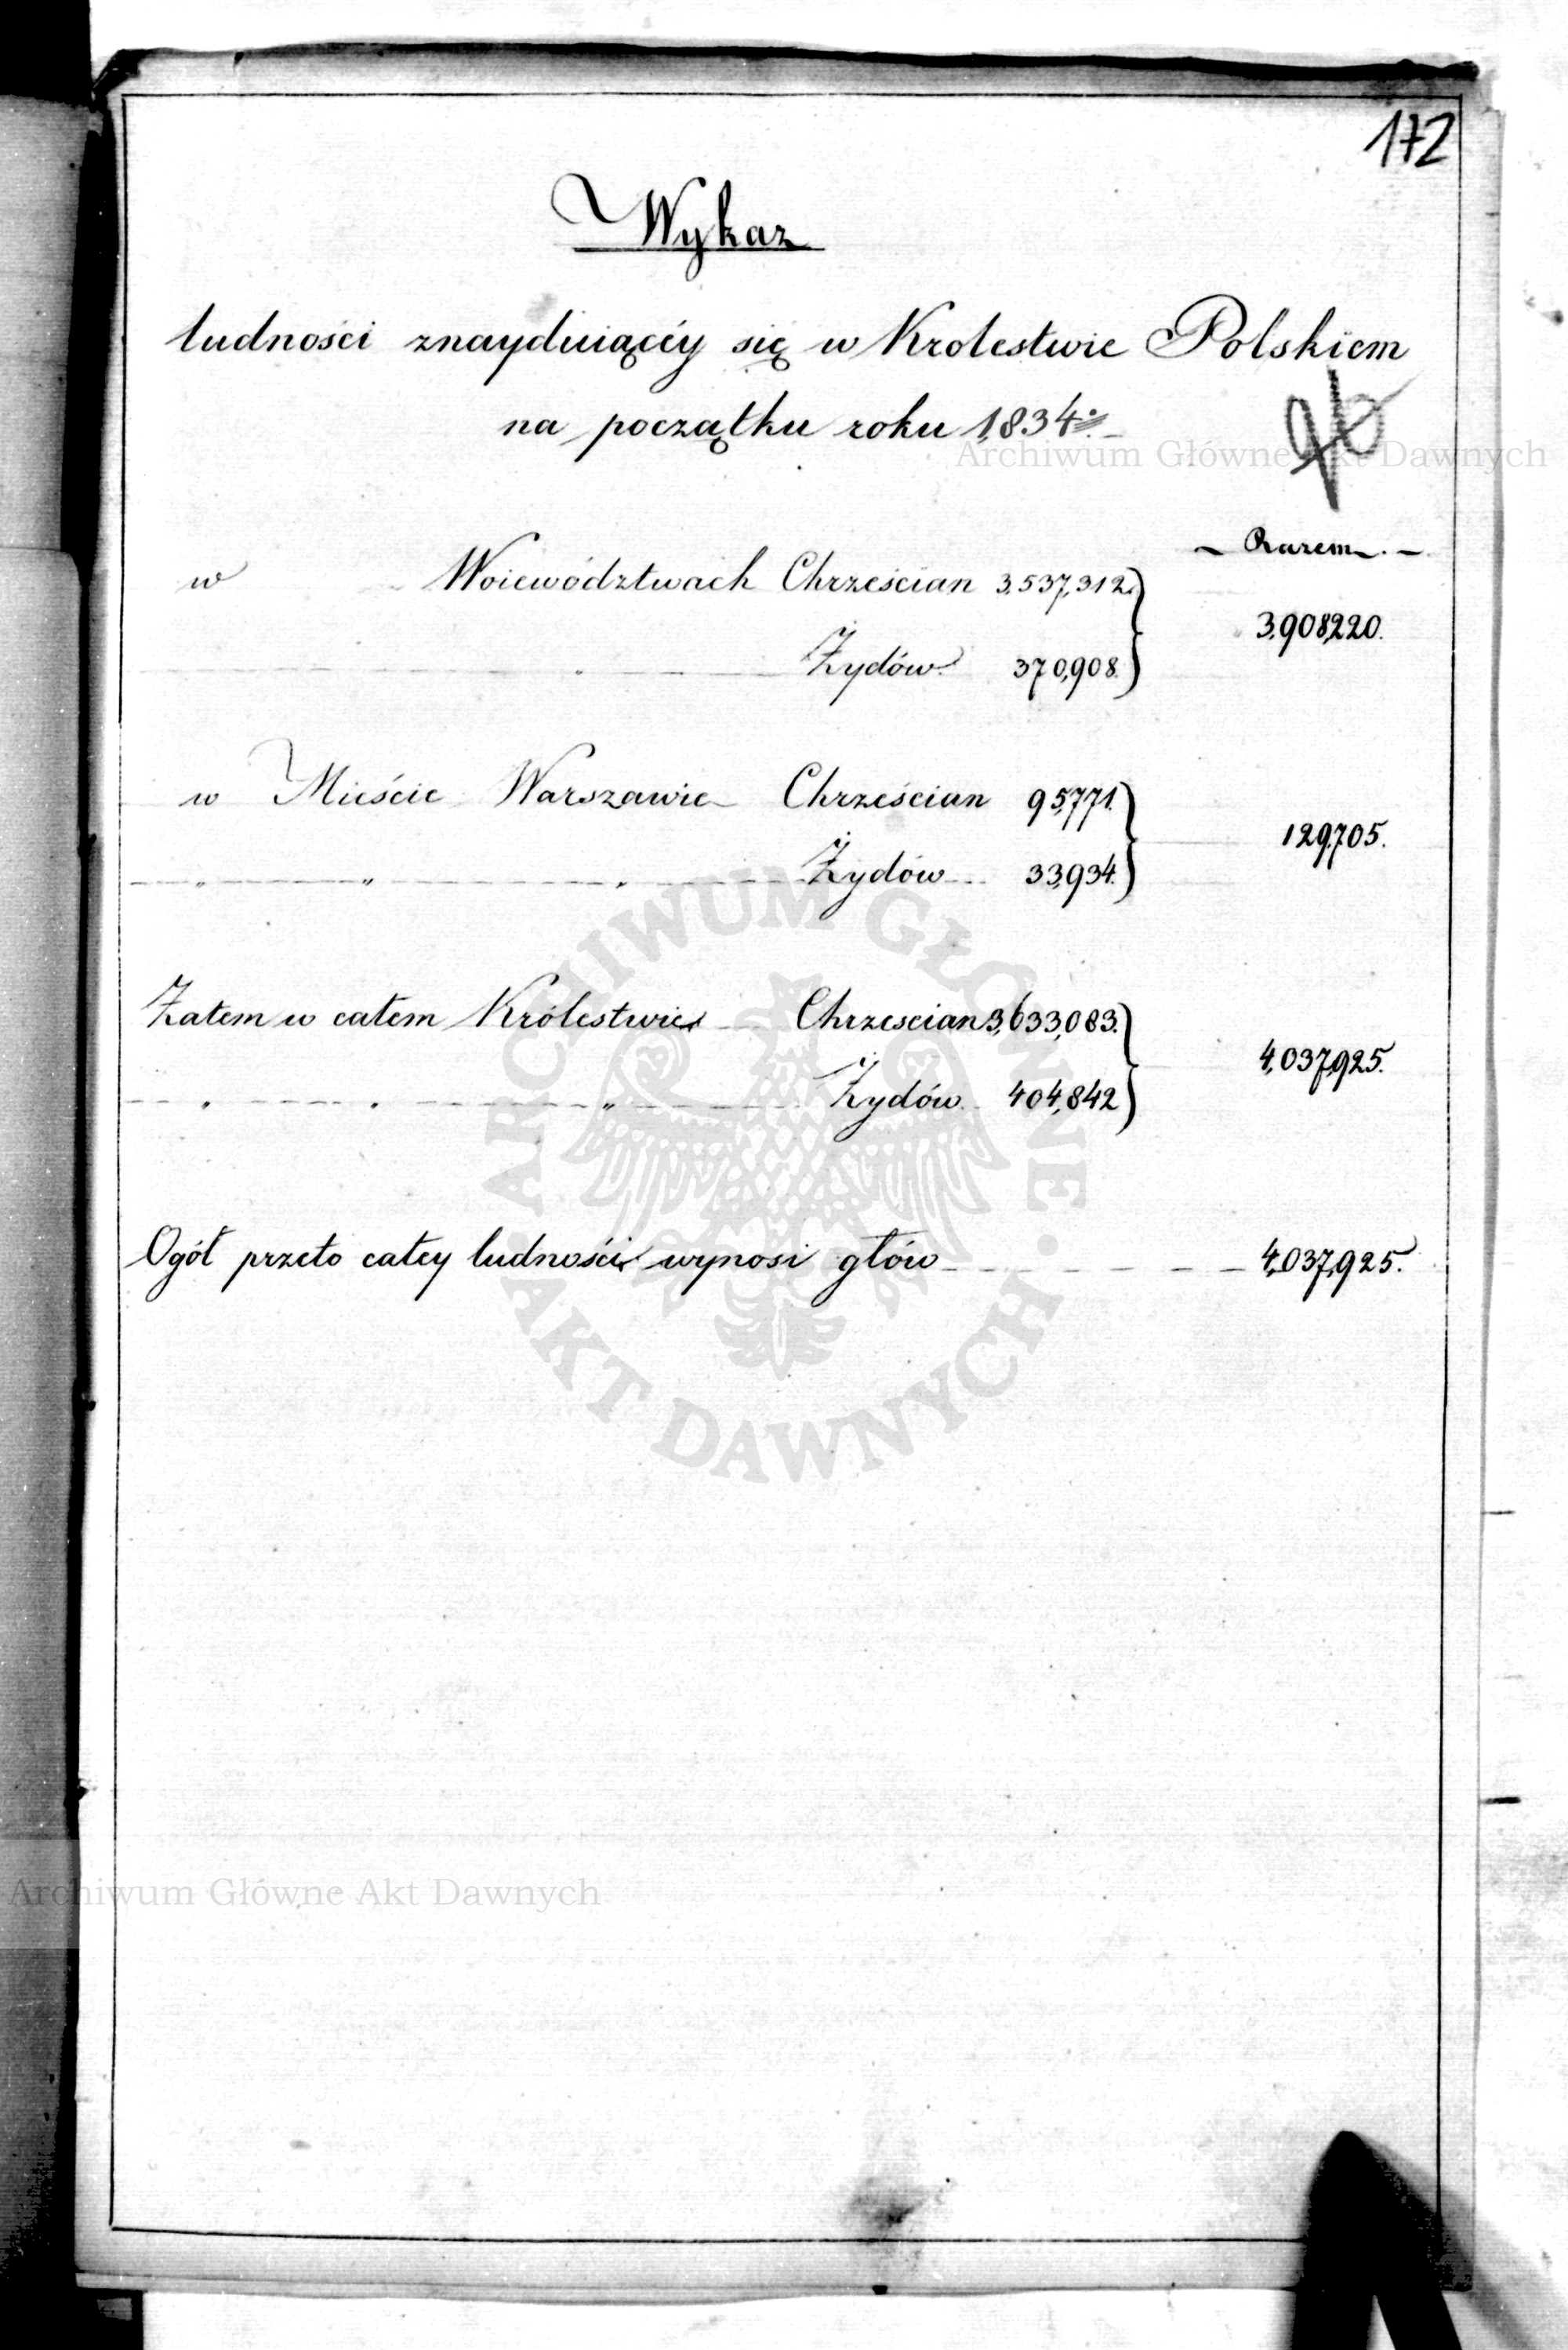 172
Wykaz
ludności znayduiącéy się w Krolestwie Polskiem
na początku roku 1834.
Archiwum Główne Akt Dawnych
Razem
w Woiewództwach Chrześcian 3,537,312.
3,908,220.
Żydów 370,908.
w Mieście Warszawie Chrześcian 95,771.
129,705.
Żydów 33,934.
Zatem w całem Królestwie Chrzescian 3,633,083.
4,037,925.
Żydów 404,842
Ogół przeto całey ludności wynosi głów 4,037,925.
ARCHIWUM GŁÓWNE AKT DAWNYCH
Archiwum Główne Akt Dawnych